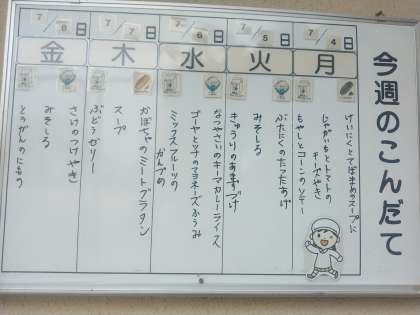 今週のこんだて
7/4日
月
けいにくとてぼまめのスープに
じゃがいもとトマトの
チーズやき
もやしとコーンのソテー
7/5日
火
ぶたにくのたつたあげ
みそしる
きゅうりのあまずづけ
7/6日
水
なつやさいのキーマカレーライス
ゴーヤとツナのマヨネーズふうみ
ミックスフルーツの
かんづめ
7/7日
木
かぼちゃのミートグラタン
スープ
ぶどうゼリー
7/8日
金
さけのつけやき
みそしる
とうがんのにもの